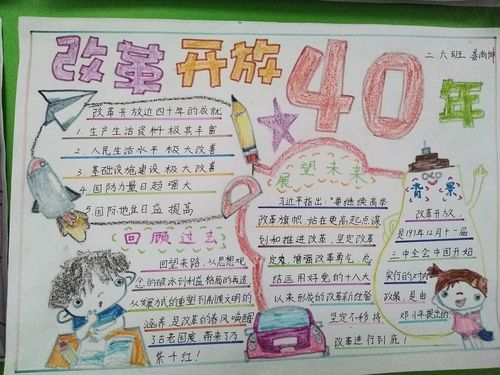 改革开放40年
二六班 姜尚坤
改革开放近四十年的成就
1.生产生活资料极其丰富
2.人民生活水平极大改善
3.基础设施建设极大改善
4.国防力量日趋强大
5.国际地位日益提高
回顾过去
回望来路,从思想观
念的破冰到利益格局的再造
从发展式的重塑到制度文明的
涵养,是改革的春风唤醒
了古老国度,带来了万
紫千红!
展望未来
习近平指出:"要继续高举
改革旗帜,站在更高起点谋
划和推进改革,坚定改革
定力,增强改革勇气,总
结运用好党的十八大
以来形成的改革新经验
坚定不移将
改革进行到底!
背景
改革开放,
是1978年12月十一届
三中全会中国开始
实行的对内
政策,是由
邓小平提出的